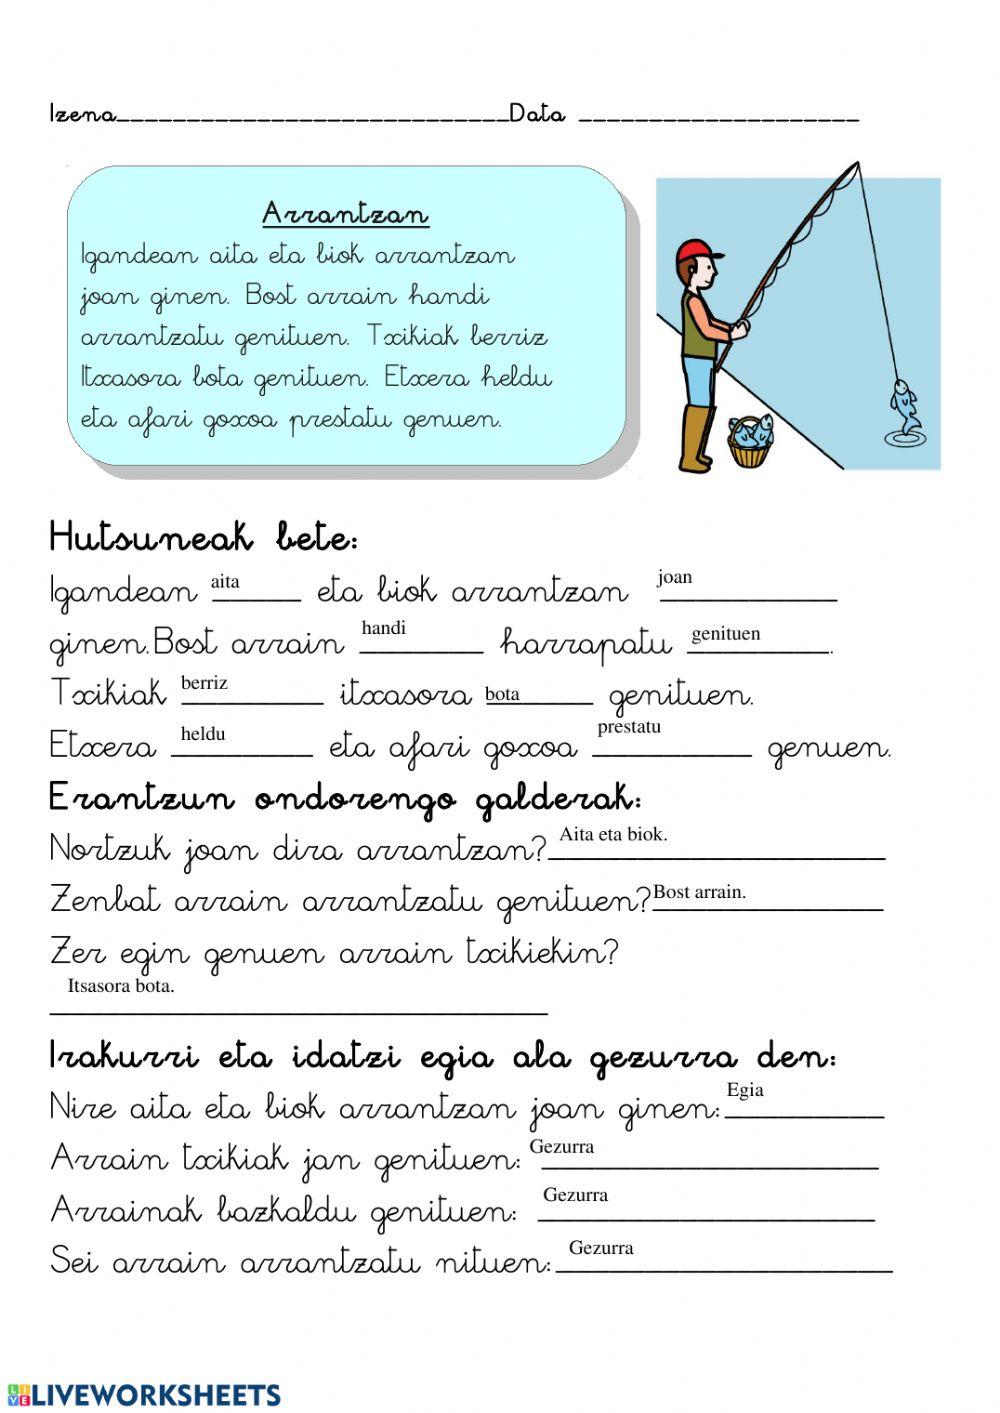 Izena____________________________Data ____________________
Arrantzan
Igandean aita eta biok arrantzan
joan ginen. Bost arrain handi
arrantzatu genituen. Txikiak berriz
Itxasora bota genituen. Etxera heldu
eta afari goxoa prestatu genuen.
Hutsuneak bete:
Igandean aita eta biok arrantzan joan
ginen.Bost arrain handi harrapatu genituen.
Txikiak berriz itxasora bota genituen.
Etxera heldu eta afari goxoa prestatu genuen.
Erantzun ondorengo galderak:
Nortzuk joan dira arrantzan? Aita eta biok.
Zenbat arrain arrantzatu genituen? Bost arrain.
Zer egin genuen arrain txikiekin?
Itsasora bota.
Irakurri eta idatzi egia ala gezurra den:
Nire aita eta biok arrantzan joan ginen: Egia
Arrain txikiak jan genituen: Gezurra
Arrainak bazkaldu genituen: Gezurra
Sei arrain arrantzatu nituen: Gezurra
LIVE LIVEWORKSHEETS